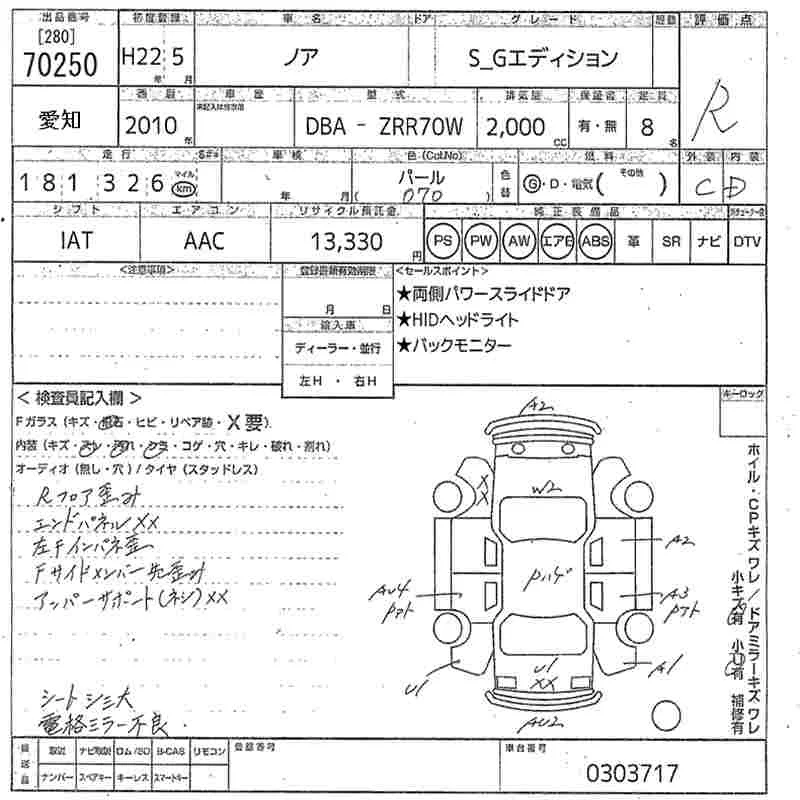 出品番号 初度登録 車名 ドア グレード 評価点
[280]
70250 H22年 5月 ノア S_Gエディション R
愛知 車歴 型式 排気量 保証書 定員
2010年 DBA - ZRR70W 2,000cc 有・無 8名
走行 車検 色(Col.No) 燃料 外装 内装
181,326 マイル km 年 月 パール 070 色替 G・D・電気( その他 ) C D
シフト エアコン リサイクル預託金 純正装備品
IAT AAC 13,330円 PS PW AW エアB ABS 革 SR ナビ DTV
<注意事項> 登録書類有効期限 <セールスポイント>
月 日
★両側パワースライドドア
★HIDヘッドライト
★バックモニター
輸入車
ディーラー・並行
左H ・ 右H
<検査員記入欄> キーロック
Fガラス(キズ・飛石・ヒビ・リペア跡・X要)
内装(キズ・スレ・汚れ・シミ・コゲ・穴・キレ・破れ・割れ)
オーディオ(無し・穴)/タイヤ(スタッドレス)
Rフロア歪み
エンドパネルXX
左Fインパネ歪
Fサイドメンバー先歪み
アッパーサポート(ネジ)XX
シートシミ大
電格ミラー不良
A2
XX
W2
A2
Pハゲ
AU4
Pアト
A3
Pアト
U1
U1
XX
A1
AU2
ホイル・CPキズワレ/ドアミラーキズワレ
小キズ有 小U有 補修有
取説 ナビ取説 ロム/SD B-CAS リモコン 登録番号 車台番号
ナンバー スペアキー キーレス スマートキー 0303717